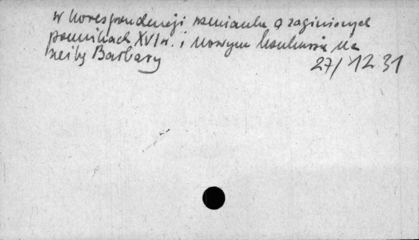 w korespondencji wzmianka o zaginionych
pomnikach XVI w. i nowym konkursie na
rzeźby Barbary
27/12 31